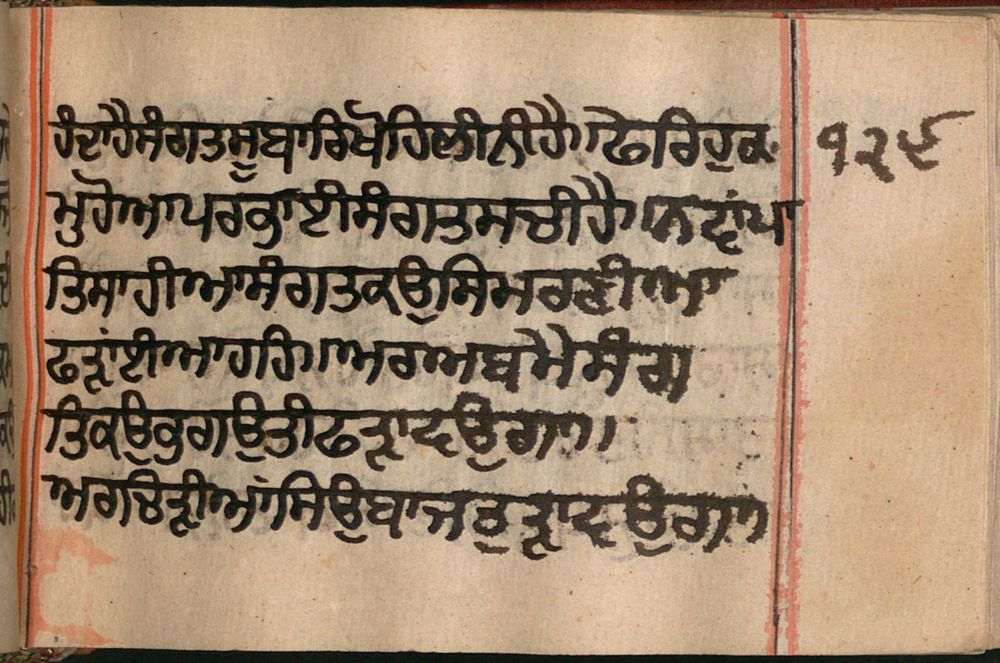 ਹੰਦਾਹੈਸੰਗਤਸੁਬਾਰਿਖੋਹਿਲੀਨੀਹੈ॥ਫੇਰਿਹੁਕ
੧੨੯
ਮੁਹੋਆਪਰੰਕਾਈਸੰਗਤਮਚੀਹੈ॥
ਤਿਸਾਹੀਆਸੰਗਤਕਉਸਿਮਰਣੀਆ
ਫੜਾਂਈਆਹਹਿ॥ਅਰਅਬਮੈਸੰਗ
ਤਿਕਉਕੁਗਉਤੀਫੜਾਵਉਗਾ॥
ਅਰਚਿੜੀਆਂਸਿਉਬਾਜਤੁੜਾਵਉਗਾ